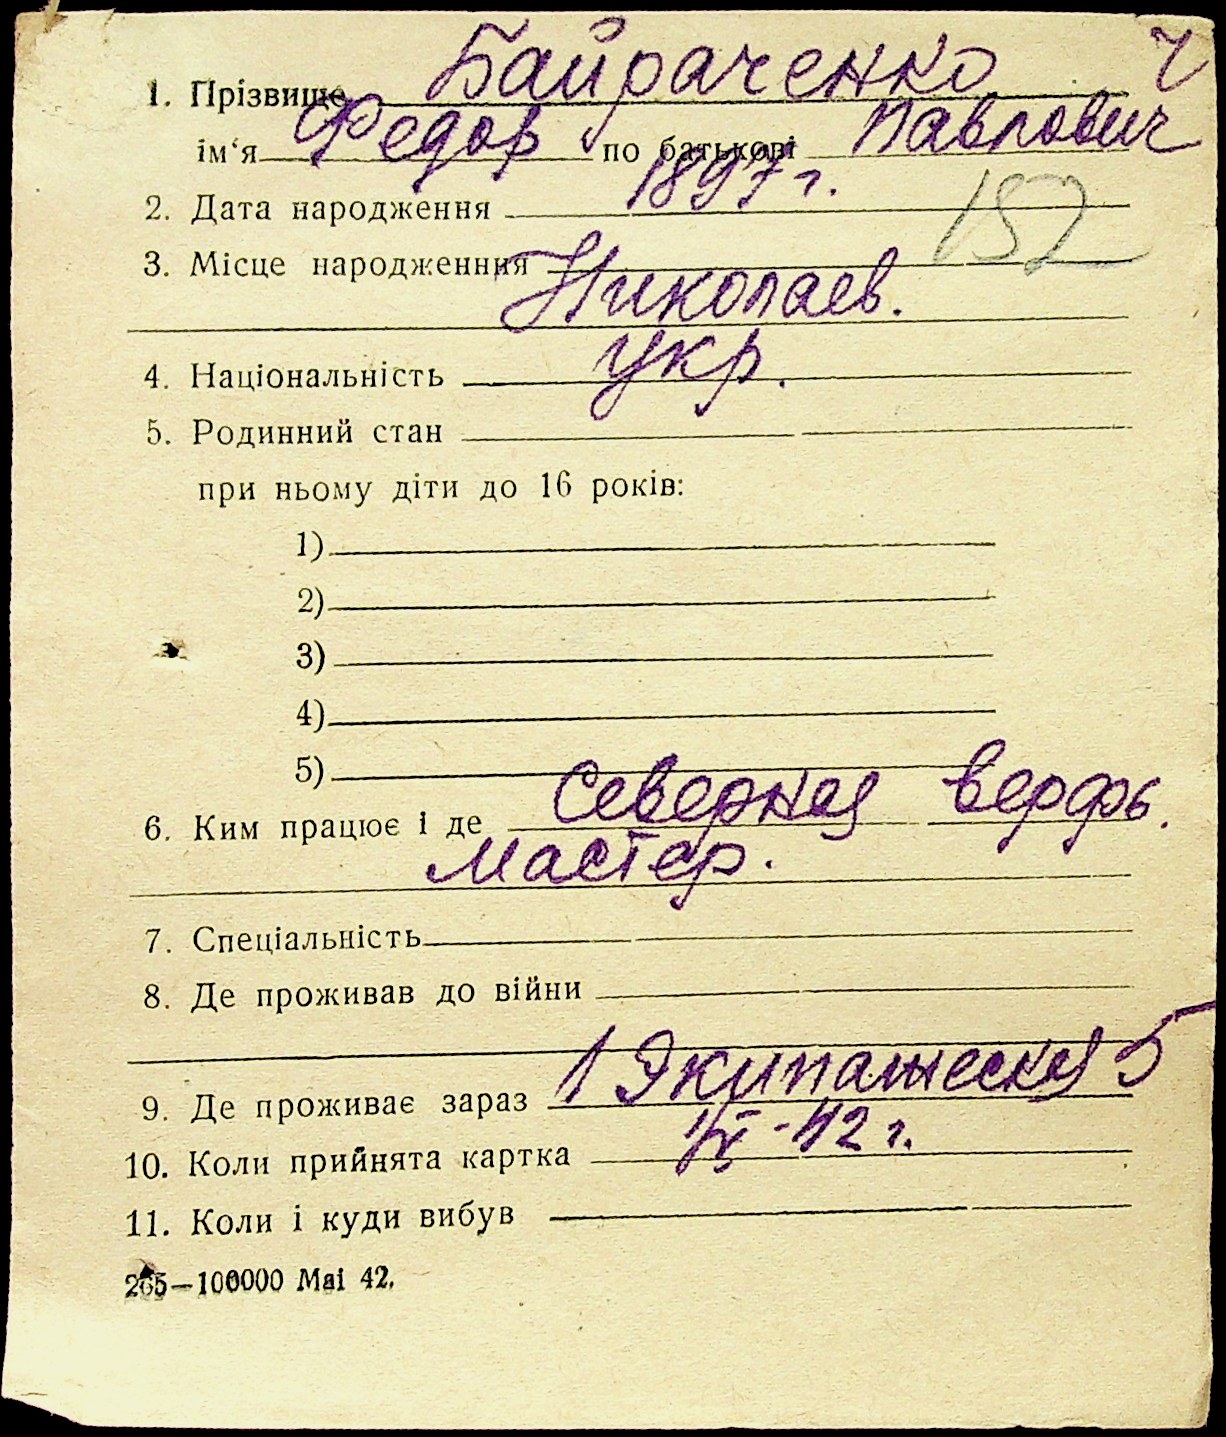 1. Прізвище Байраченко
ім‘я Федор по батькові Павлович
2. Дата народження 1897 г.
152
3. Місце народженння
Николаев.
4. Національність укр.
5. Родинний стан
при ньому діти до 16 років:
1)
2)
3)
4)
5)
6. Ким працює і де Северная верфь.
мастер.
7. Спеціальність
8. Де проживав до війни
9. Де проживає зараз 1 Экипажеская 5
10. Коли прийнята картка -42 г.
11. Коли і куди вибув
265—100000 Mai 42.